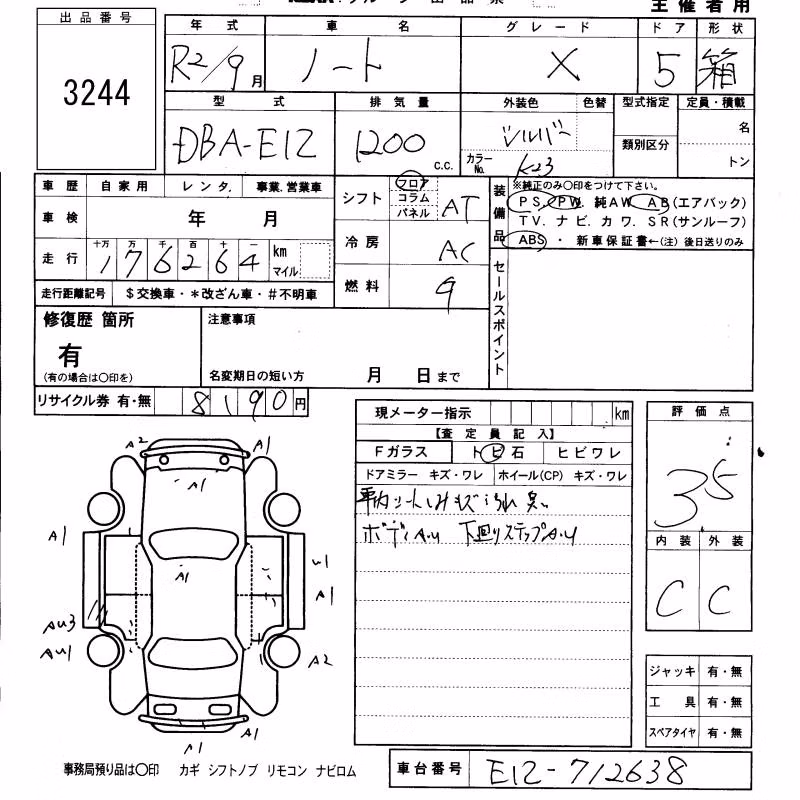 主催者用
出品番号
3244
年式 車名 グレード ドア 形状
R2/9月 ノート X 5 箱
型式 排気量 外装色 色替 型式指定 定員・積載
DBA-E12 1200 c.c. シルバー 類別区分 名
カラーNo. K23 トン
車歴 自家用 レンタ. 事業.営業車
車検 年 月
走行 十万 万 千 百 十 一 km マイル
176264
走行距離記号 $交換車・*改ざん車・#不明車
シフト フロア コラム パネル AT
冷房 AC
燃料 g
装備品 ※純正のみ〇印をつけて下さい。
PS. PW. 純AW. AB(エアバック)
TV. ナビ. カワ. SR(サンルーフ)
ABS ・ 新車保証書←(注) 後日送りのみ
セールスポイント
修復歴 箇所
有
(有の場合は〇印を)
注意事項
名変期日の短い方 月 日まで
リサイクル券 有・無 8190円
現メーター指示 km
【査定員記入】
Fガラス トビ石 ヒビワレ
ドアミラー キズ・ワレ ホイール(CP) キズ・ワレ
ボディA.U 下廻りステップA.U
評価点
3.5
内装 外装
C C
A2 A1
A1
A1 U1
A1 A1
AU3
AU1 A2
A1 A1
ジャッキ 有・無
工具 有・無
スペアタイヤ 有・無
事務局預り品は〇印 カギ シフトノブ リモコン ナビロム
車台番号 E12-712638